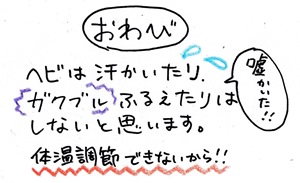 おわび
ヘビは汗かいたり、
ガクブルふるえたりは
しないと思います。
体温調節できないから!!
嘘かいた!!